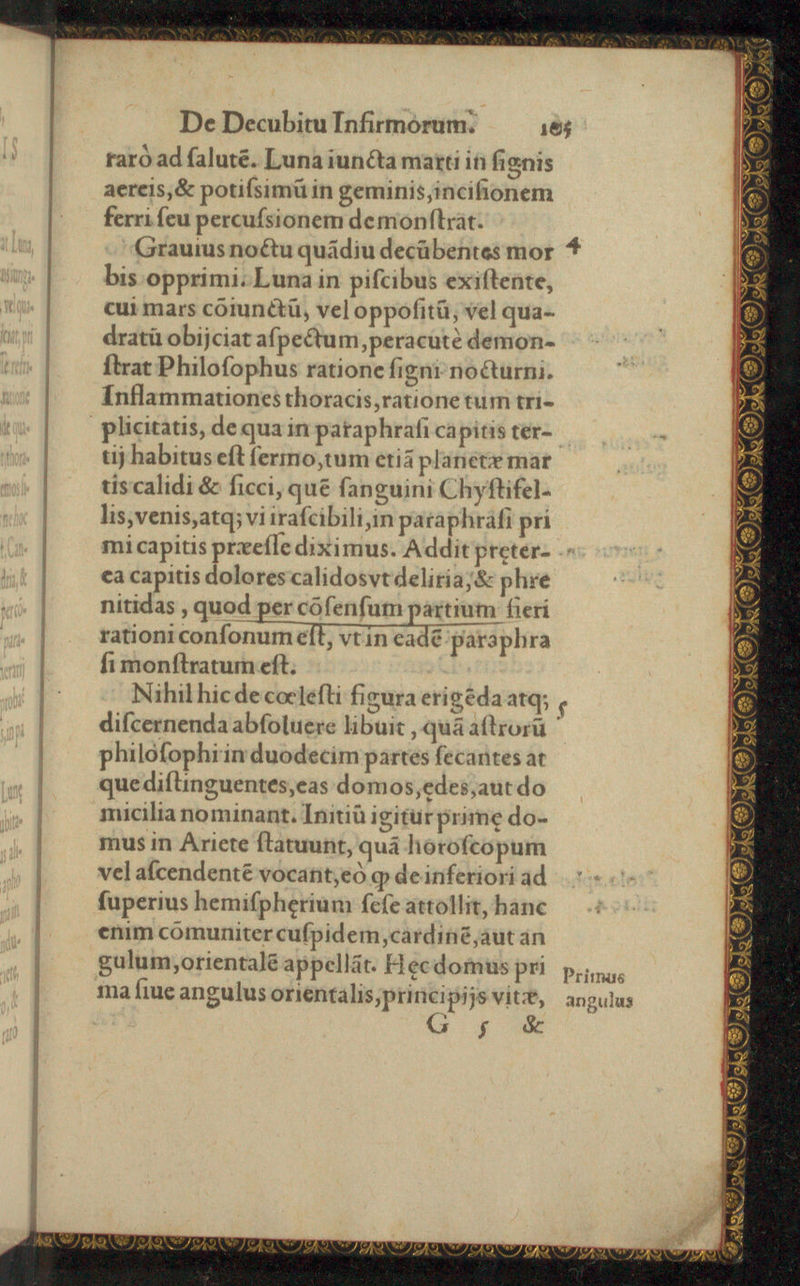 De Decubitu Infirmorum. 105
raro ad ſalutẽ. Luna iuncta marti in ſignis
aereis,& potiſsimũ in geminis,inciſionem
ferri ſeu percuſsionem demonſtrat.
Grauius noctu quãdiu decũbentes mor 4
bis opprimi. Luna in piſcibus exiſtente,
cui mars cõiunctũ, vel oppoſitũ, vel qua-
dratũ obijciat aſpectum,peracutè demon-
ſtrat Philoſophus ratione ſigni nocturni.
Inflammationes thoracis,ratione tum tri-
plicitatis, de qua in paraphraſi capitis ter-
tij habitus eſt ſermo,tum etiã planetæ mar
tis calidi & ſicci, quẽ ſanguini Chyſtifel-
lis,venis,atq; vi iraſcibili,in paraphraſi pri
mi capitis præeſſe diximus. Addit pręter-
ea capitis dolores calidos vt deliria,& phre
nitidas , quod per cõſenſum partium fieri
rationi conſonum eſt, vt in eadẽ paraphra
ſi monſtratum eſt.
Nihil hic de cœleſti figura erigẽda atq; 5
diſcernenda abſoluere libuit , quã aſtrorũ
philoſophi in duodecim partes ſecantes at
que diſtinguentes,eas domos,ędes,aut do
micilia nominant. Initiũ igitur primę do-
mus in Ariete ſtatuunt, quã horoſcopum
vel aſcendentẽ vocant,eò ꝙ de inferiori ad
ſuperius hemiſphęrium ſeſe attollit, hanc
enim cõmuniter cuſpidem,cardinẽ,aut an
gulum,orientalẽ appellãt. Hęc domus pri
ma ſiue angulus orientalis,principijs vitæ,
Primus
angulus
G 5 &